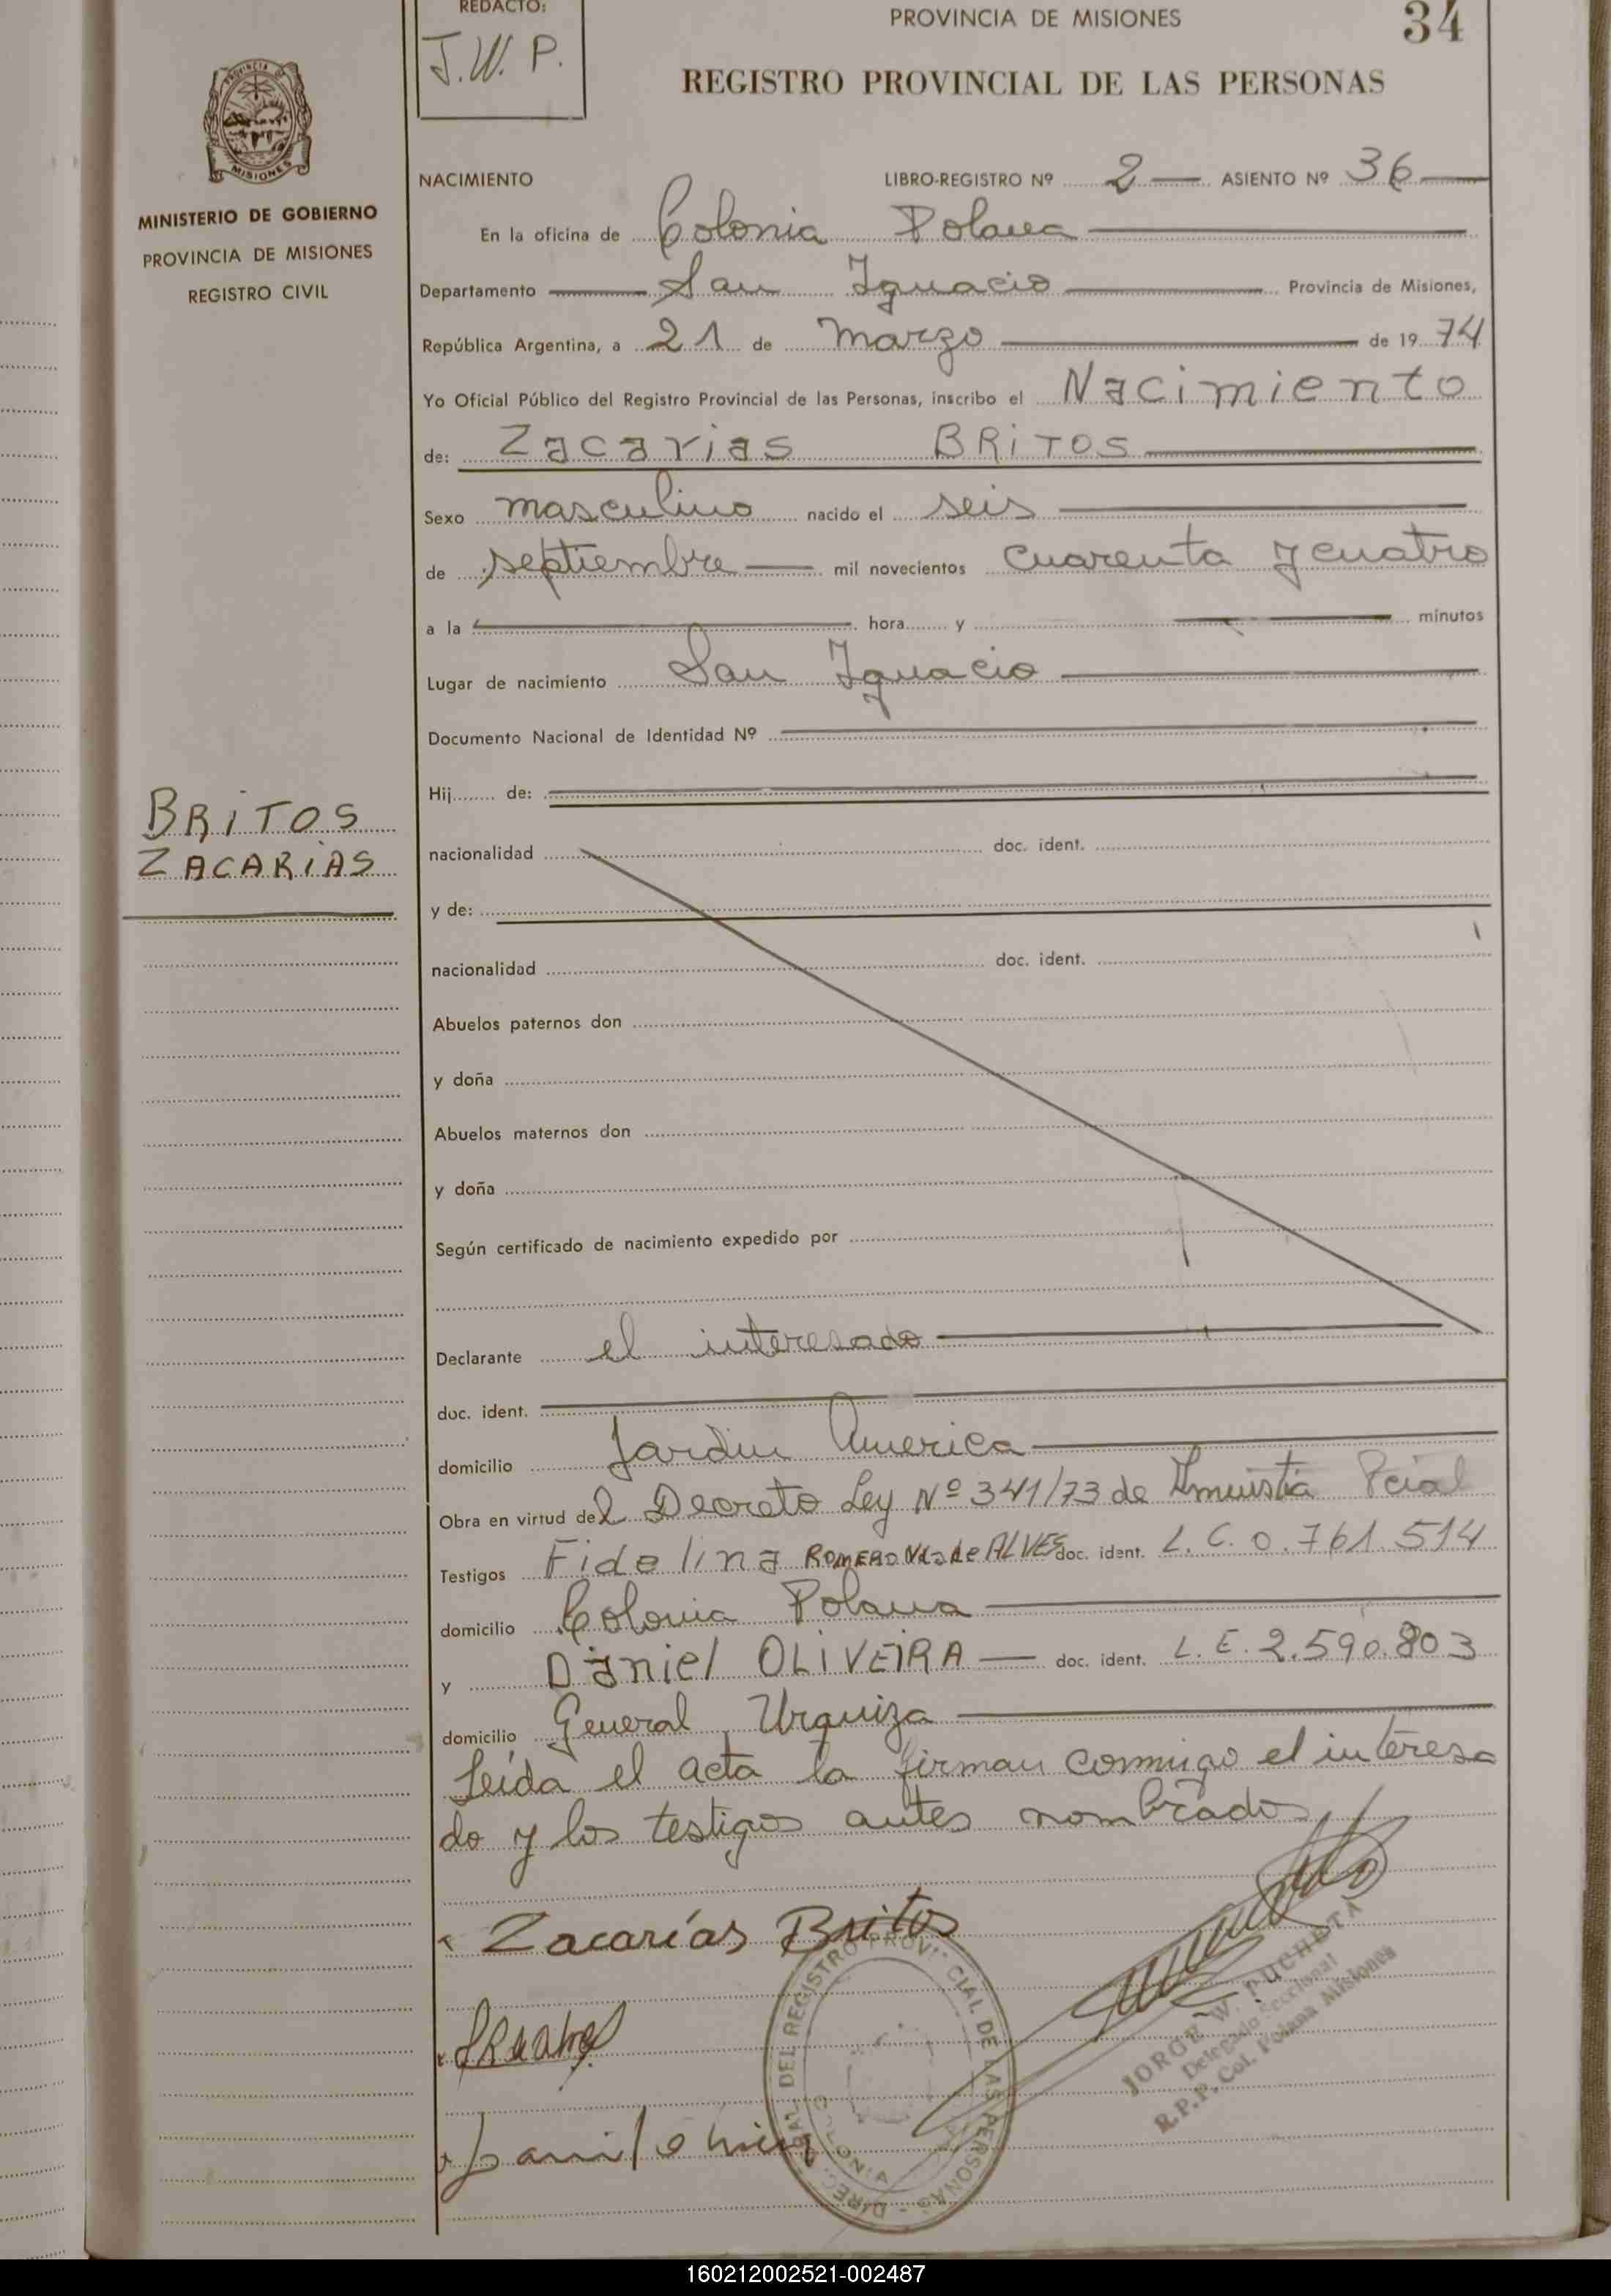 REDACTO:
J.W.P.
PROVINCIA DE MISIONES
34
REGISTRO PROVINCIAL DE LAS PERSONAS
MISIONES
MINISTERIO DE GOBIERNO
PROVINCIA DE MISIONES
REGISTRO CIVIL
NACIMIENTO LIBRO-REGISTRO Nº 2 ASIENTO Nº 36
En la oficina de Colonia Polana
Departamento San Ignacio Provincia de Misiones,
República Argentina, a 21 de Marzo de 1974
Yo Oficial Público del Registro Provincial de las Personas, inscribo el Nacimiento
de: Zacarias BRITOS
Sexo masculino nacido el seis
de septiembre mil novecientos cuarenta y cuatro
a la hora y minutos
Lugar de nacimiento San Ignacio
Documento Nacional de Identidad Nº
Hij de:
BRITOS
ZACARIAS
nacionalidad doc. ident.
y de:
nacionalidad doc. ident.
Abuelos paternos don
y doña
Abuelos maternos don
y doña
Según certificado de nacimiento expedido por
Declarante el interesado
doc. ident.
domicilio Jardin America
Obra en virtud del Decreto Ley Nº 341/73 de Amnistia Pcial
Testigos Fidelina ROMERO Vda de ALVES doc. ident. L.C.0.761.514
domicilio Colonia Polana
y Daniel OLIVEIRA doc. ident. L.E. 2.590.803
domicilio General Urquiza
Leída el acta la firman conmigo el interesa
do y los testigos antes nombrados
Zacarías Britos
DIREC. GRAL. DEL REGISTRO PROVINCIAL DE LAS PERSONAS
COLONIA
JORGE W. PUCHETA
Delegado Seccional
R.P.P. Col. Polana Misiones
160212002521-002487